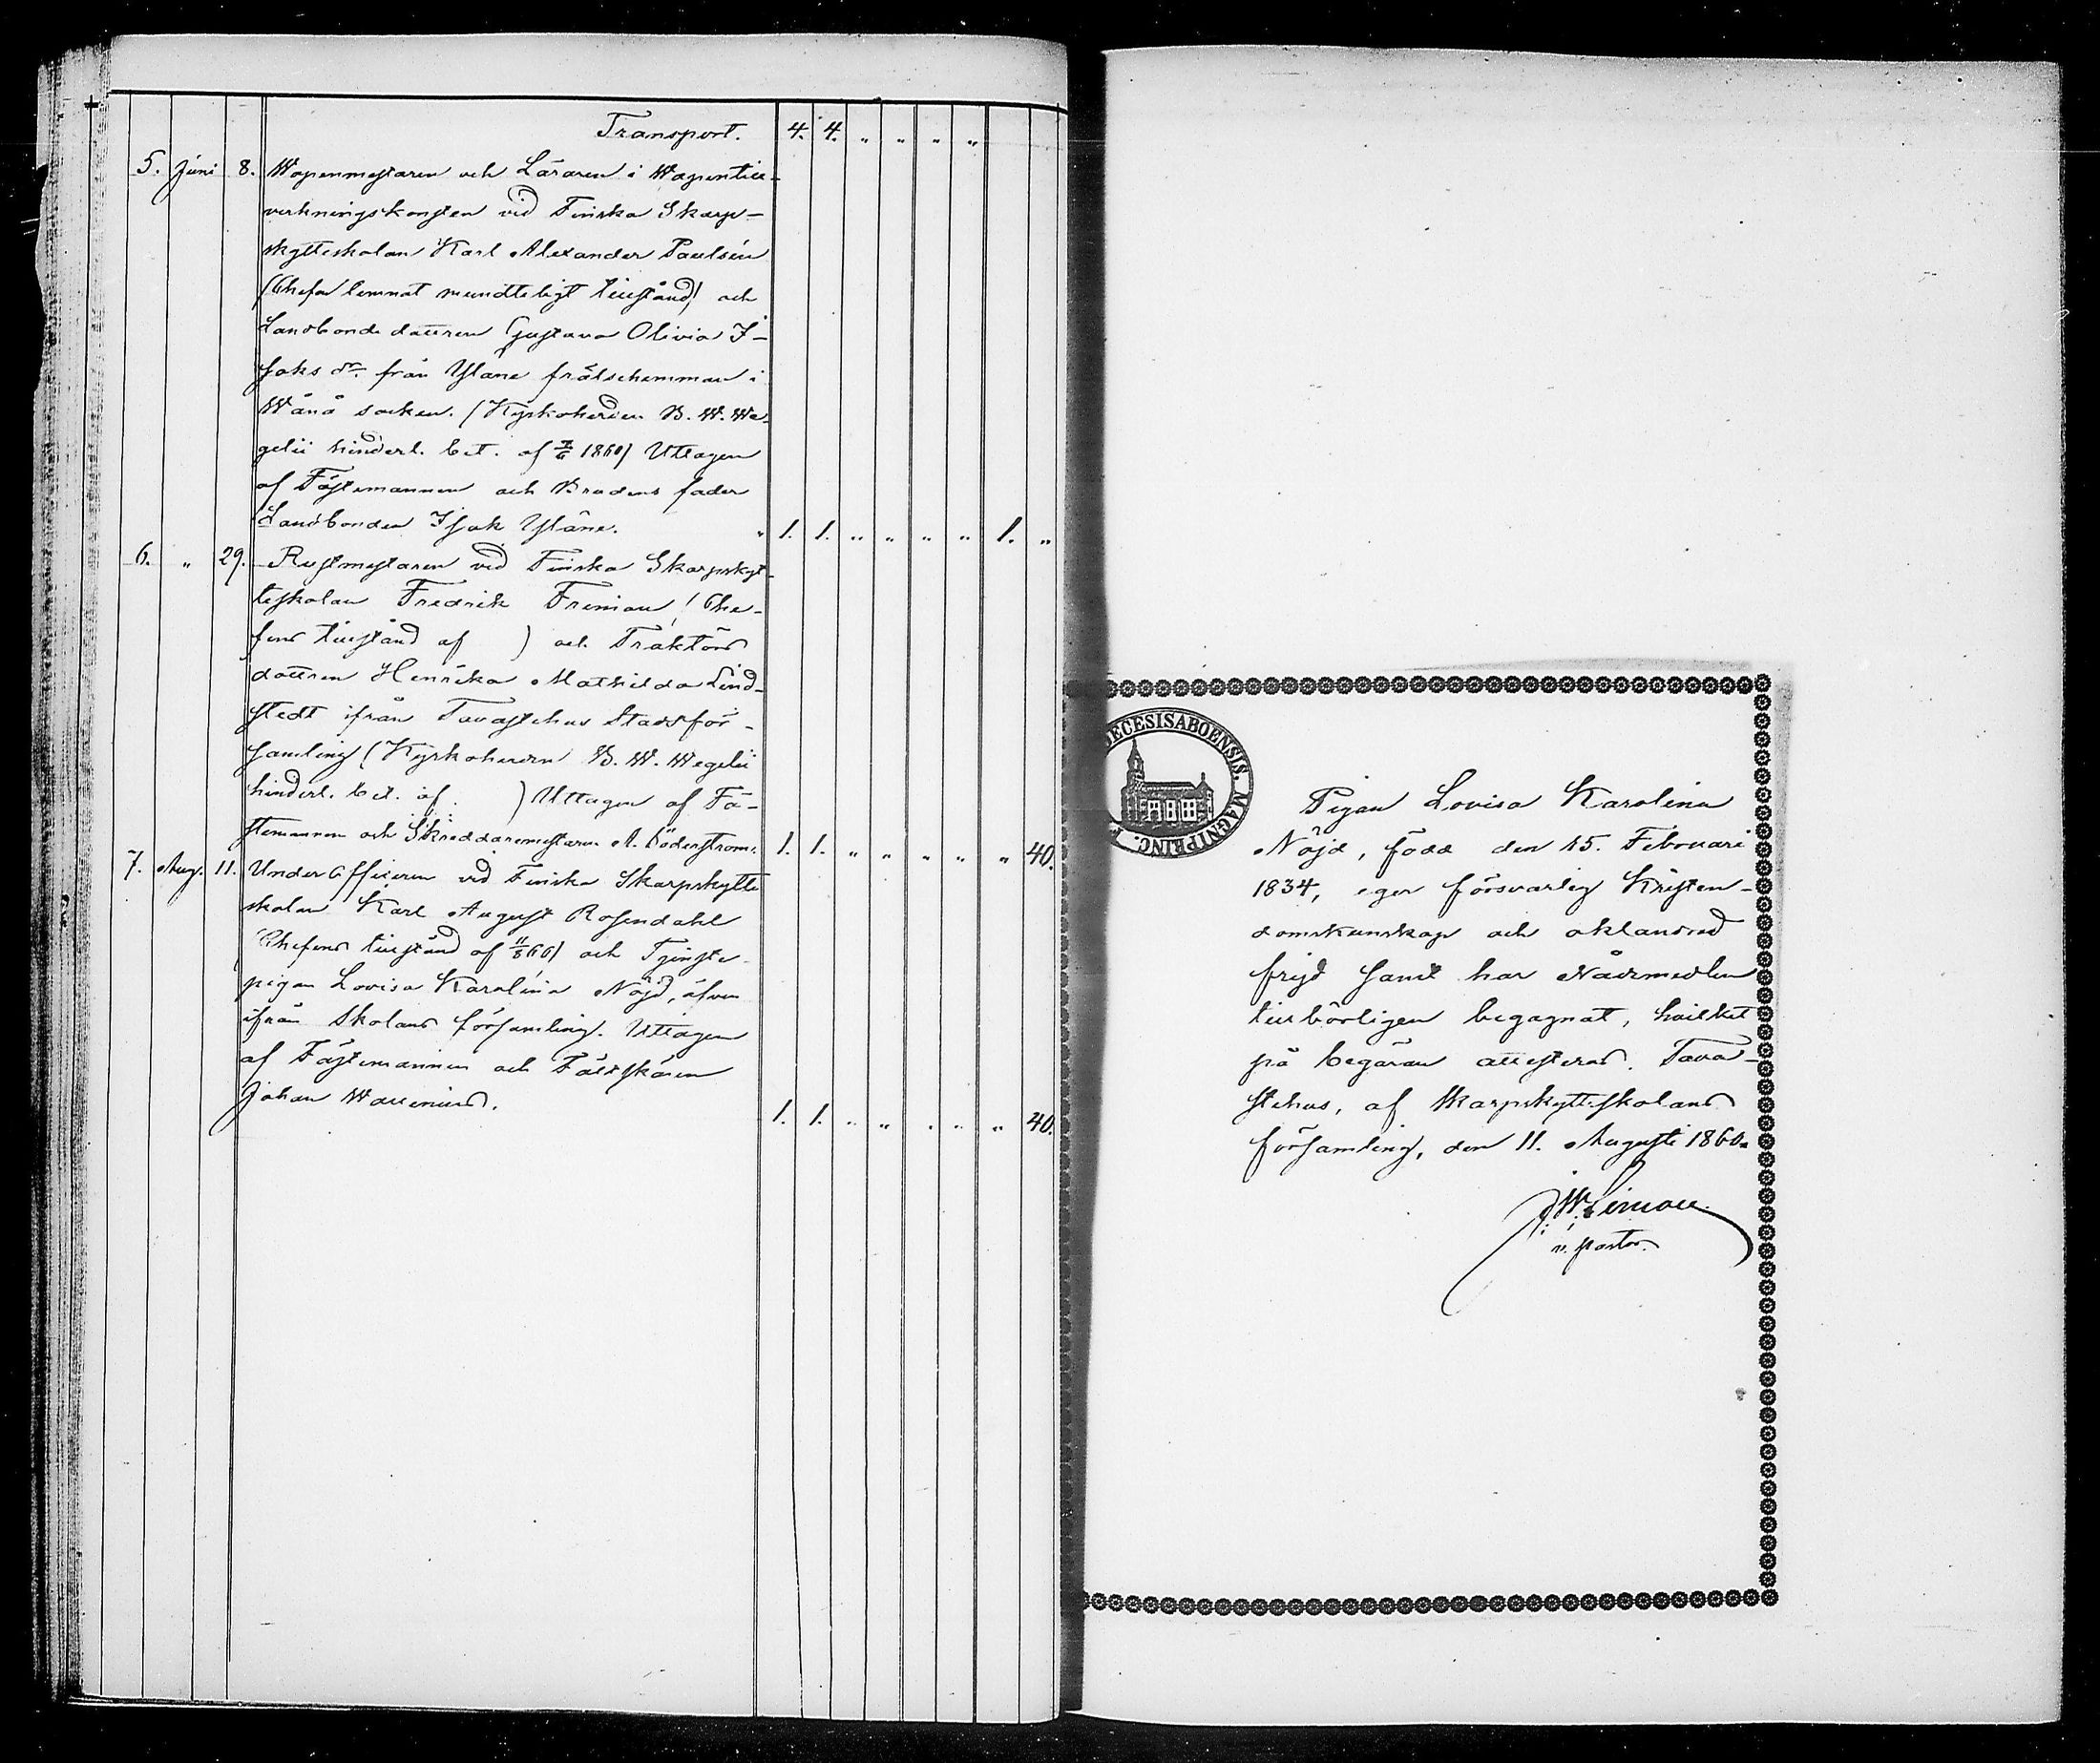 Transport. 4. 4. " " " "
5. Juni 8. Wapenmästaren och Läraren i Wapentill-
verkningskonsten vid Finska Skarp-
skytteskolan Karl Alexander Paulsén
(Chefen lemnat mundteligt tillstånd) och
Landbonde dottren Gustava Olivia I-
saks dr. från Yläne frälsehemman i
Wånå socken. (Kyrkoherden B. W. We-
gelii hinderl. bet. af 7/6 1860) Uttagen
af Fästemannen och Brudens fader
Landbonden Isak Yläne. " 1. 1. " " " " 1. "
6. " 29. Rustmästaren vid Finska Skarpskyt-
teskolan Fredrik Friman (Che-
fens tillstånd af ) och Traktörs
dottren Henrika Mathilda Lind-
stedt ifrån Tavastehus Stadsför-
samling (Kyrkoherden B. W. Wegelii
hinderl. bet. af. ) Uttagen af Fä-
stemannen och Skräddaremästaren A. Söderström. 1. 1. " " " " " 40.
7. Aug. 11. Under Officeren vid Finska Skarpskytte
skolan Karl August Rosendahl
(Chefens tillstånd af 11/8 60) och Tjenste-
pigan Lovisa Karolina Nöjd, äfven
ifrån Skolans församling. Uttagen
af Fästemannen och Fältskären
Johan Wallenius. 1. 1. " " " " " 40.
DIOECESIS ABOENSIS. MAGNI PRINC. F
Pigan Lovisa Karolina
Nöjd, född den 15. Februari
1834, eger försvarlig Kristen-
domskunskap och oklandrad
frejd samt har Nådmedlen
tillbörligen begagnat, hvilket
på begäran attesteras. Tava-
stehus, af Skarpskytteskolans
församling, den 11. Augusti 1860.
v. pastor.